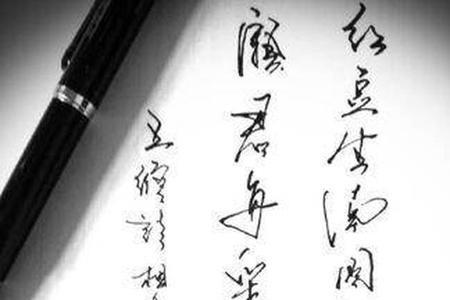 红豆生南国
愿君多采
王维诗相